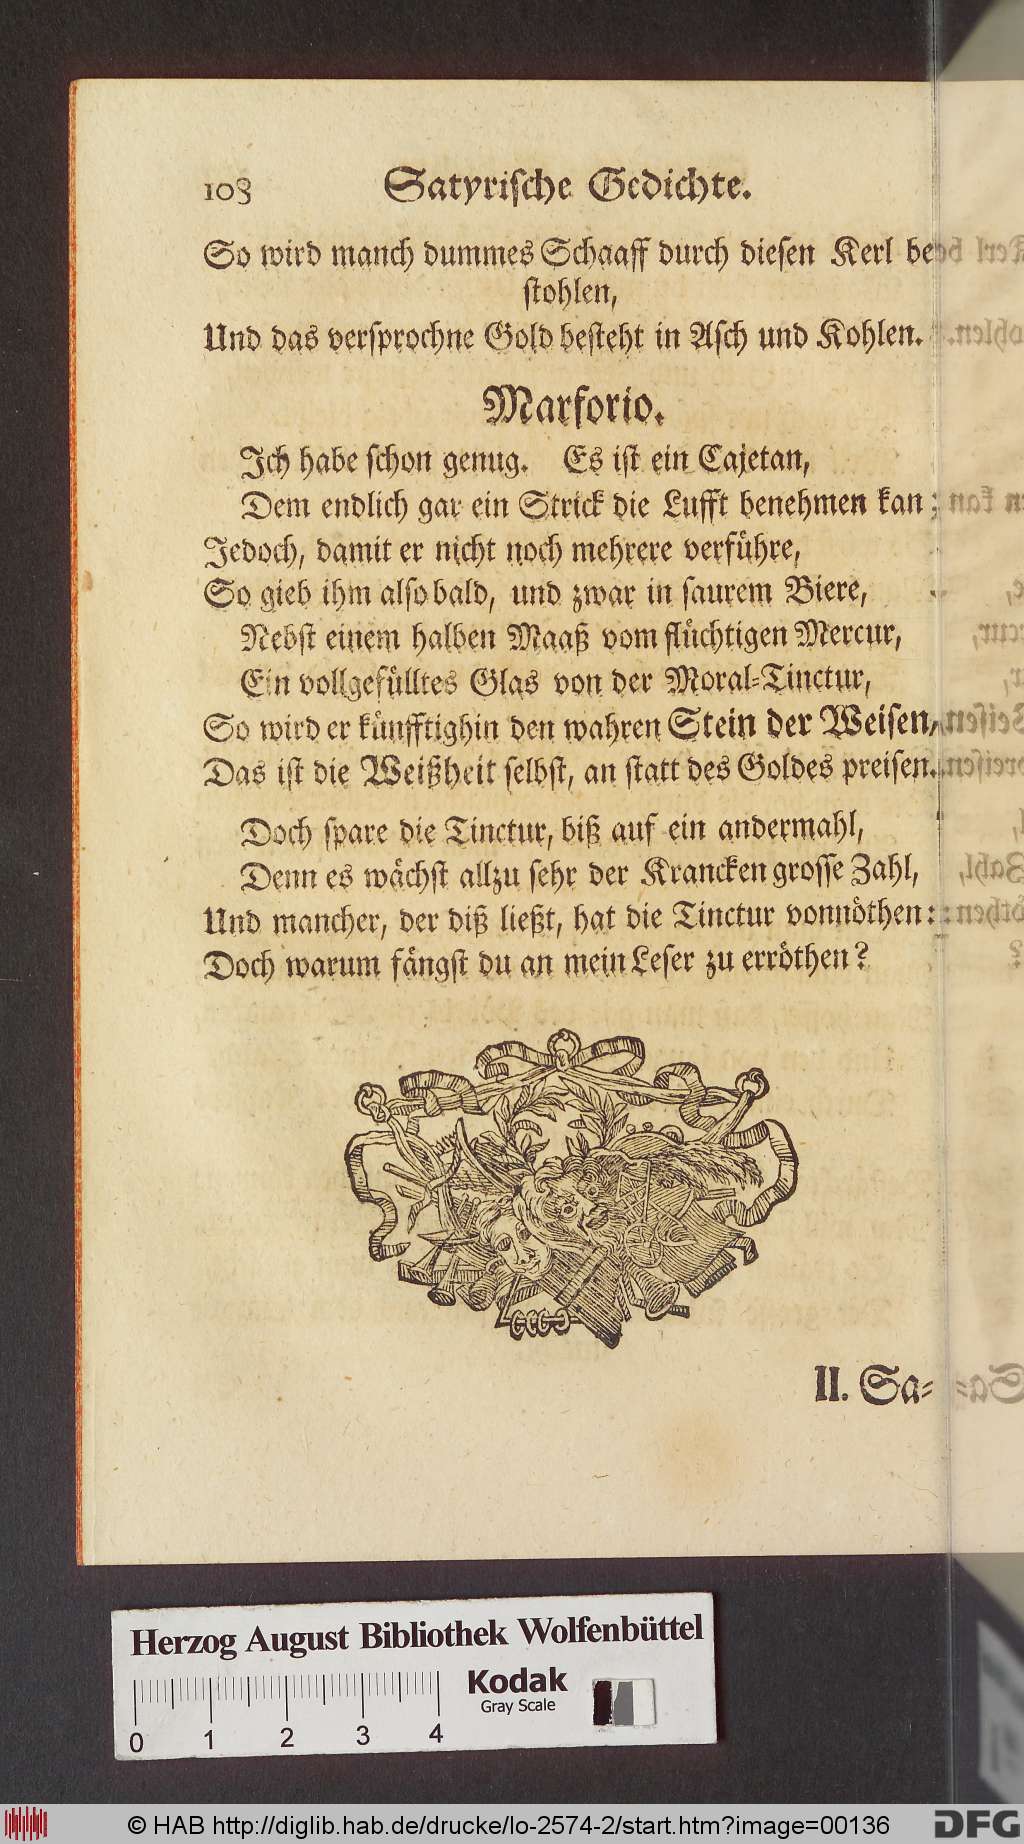 108 Satyrische Gedichte.
So wird manch dummes Schaaff durch diesen Kerl be
stohlen,
Und das versprochne Gold besteht in Asch und Kohlen.
Marforio.
Ich habe schon genug. Es ist ein Cajetan,
Dem endlich gar ein Strick die Lufft benehmen kan;
Jedoch, damit er nicht noch mehrere verführe,
So gieb ihm alsobald, und zwar in saurem Biere,
Nebst einem halben Maaß vom flüchtigen Mercur,
Ein vollgefülltes Glas von der Moral-Tinctur,
So wird er künfftighin den wahren Stein der Weisen,
Das ist die Weißheit selbst, an statt des Goldes preisen.
Doch spare die Tinctur, biß auf ein andermahl,
Denn es wächst allzu sehr der Krancken grosse Zahl,
Und mancher, der diß ließt, hat die Tinctur vonnöthen:
Doch warum fängst du an mein Leser zu erröthen?
II. Sa-
Herzog August Bibliothek Wolfenbüttel
Kodak
Gray Scale
0 1 2 3 4
© HAB http://diglib.hab.de/drucke/lo-2574-2/start.htm?image=00136
DFG